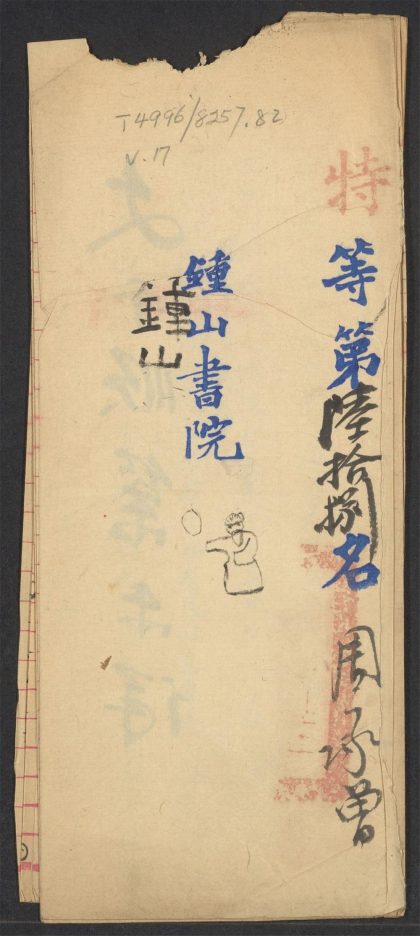 T4996/8257.82
v.17
特等第陸拾捌名 周承曾
鍾山書院
鍾山